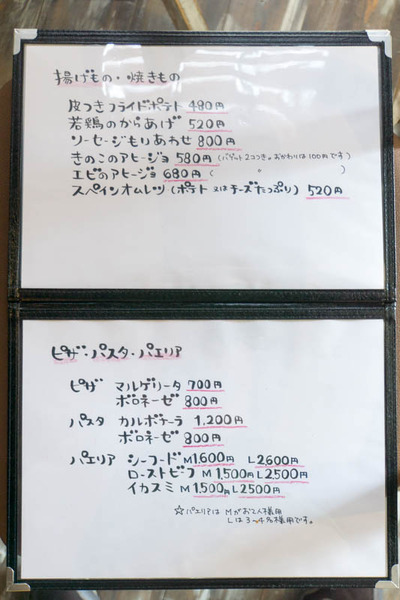 揚げもの・焼きもの
皮つきフライドポテト 480円
若鶏のからあげ 520円
ソーセージもりあわせ 800円
きのこのアヒージョ 580円 (バゲット2コつき。おかわりは100円です)
エビのアヒージョ 680円 ( 〃 )
スペインオムレツ (ポテト 又は チーズたっぷり) 520円
ピザ・パスタ・パエリア
ピザ マルゲリータ 700円
ボロネーゼ 800円
パスタ カルボナーラ 1,200円
ボロネーゼ 800円
パエリア シーフード M1,600円 L2600円
ローストビーフ M1,500円 L2,500円
イカスミ M1,500円 L2500円
☆パエリアは Mがお二人様用
Lは3〜4名様用です。